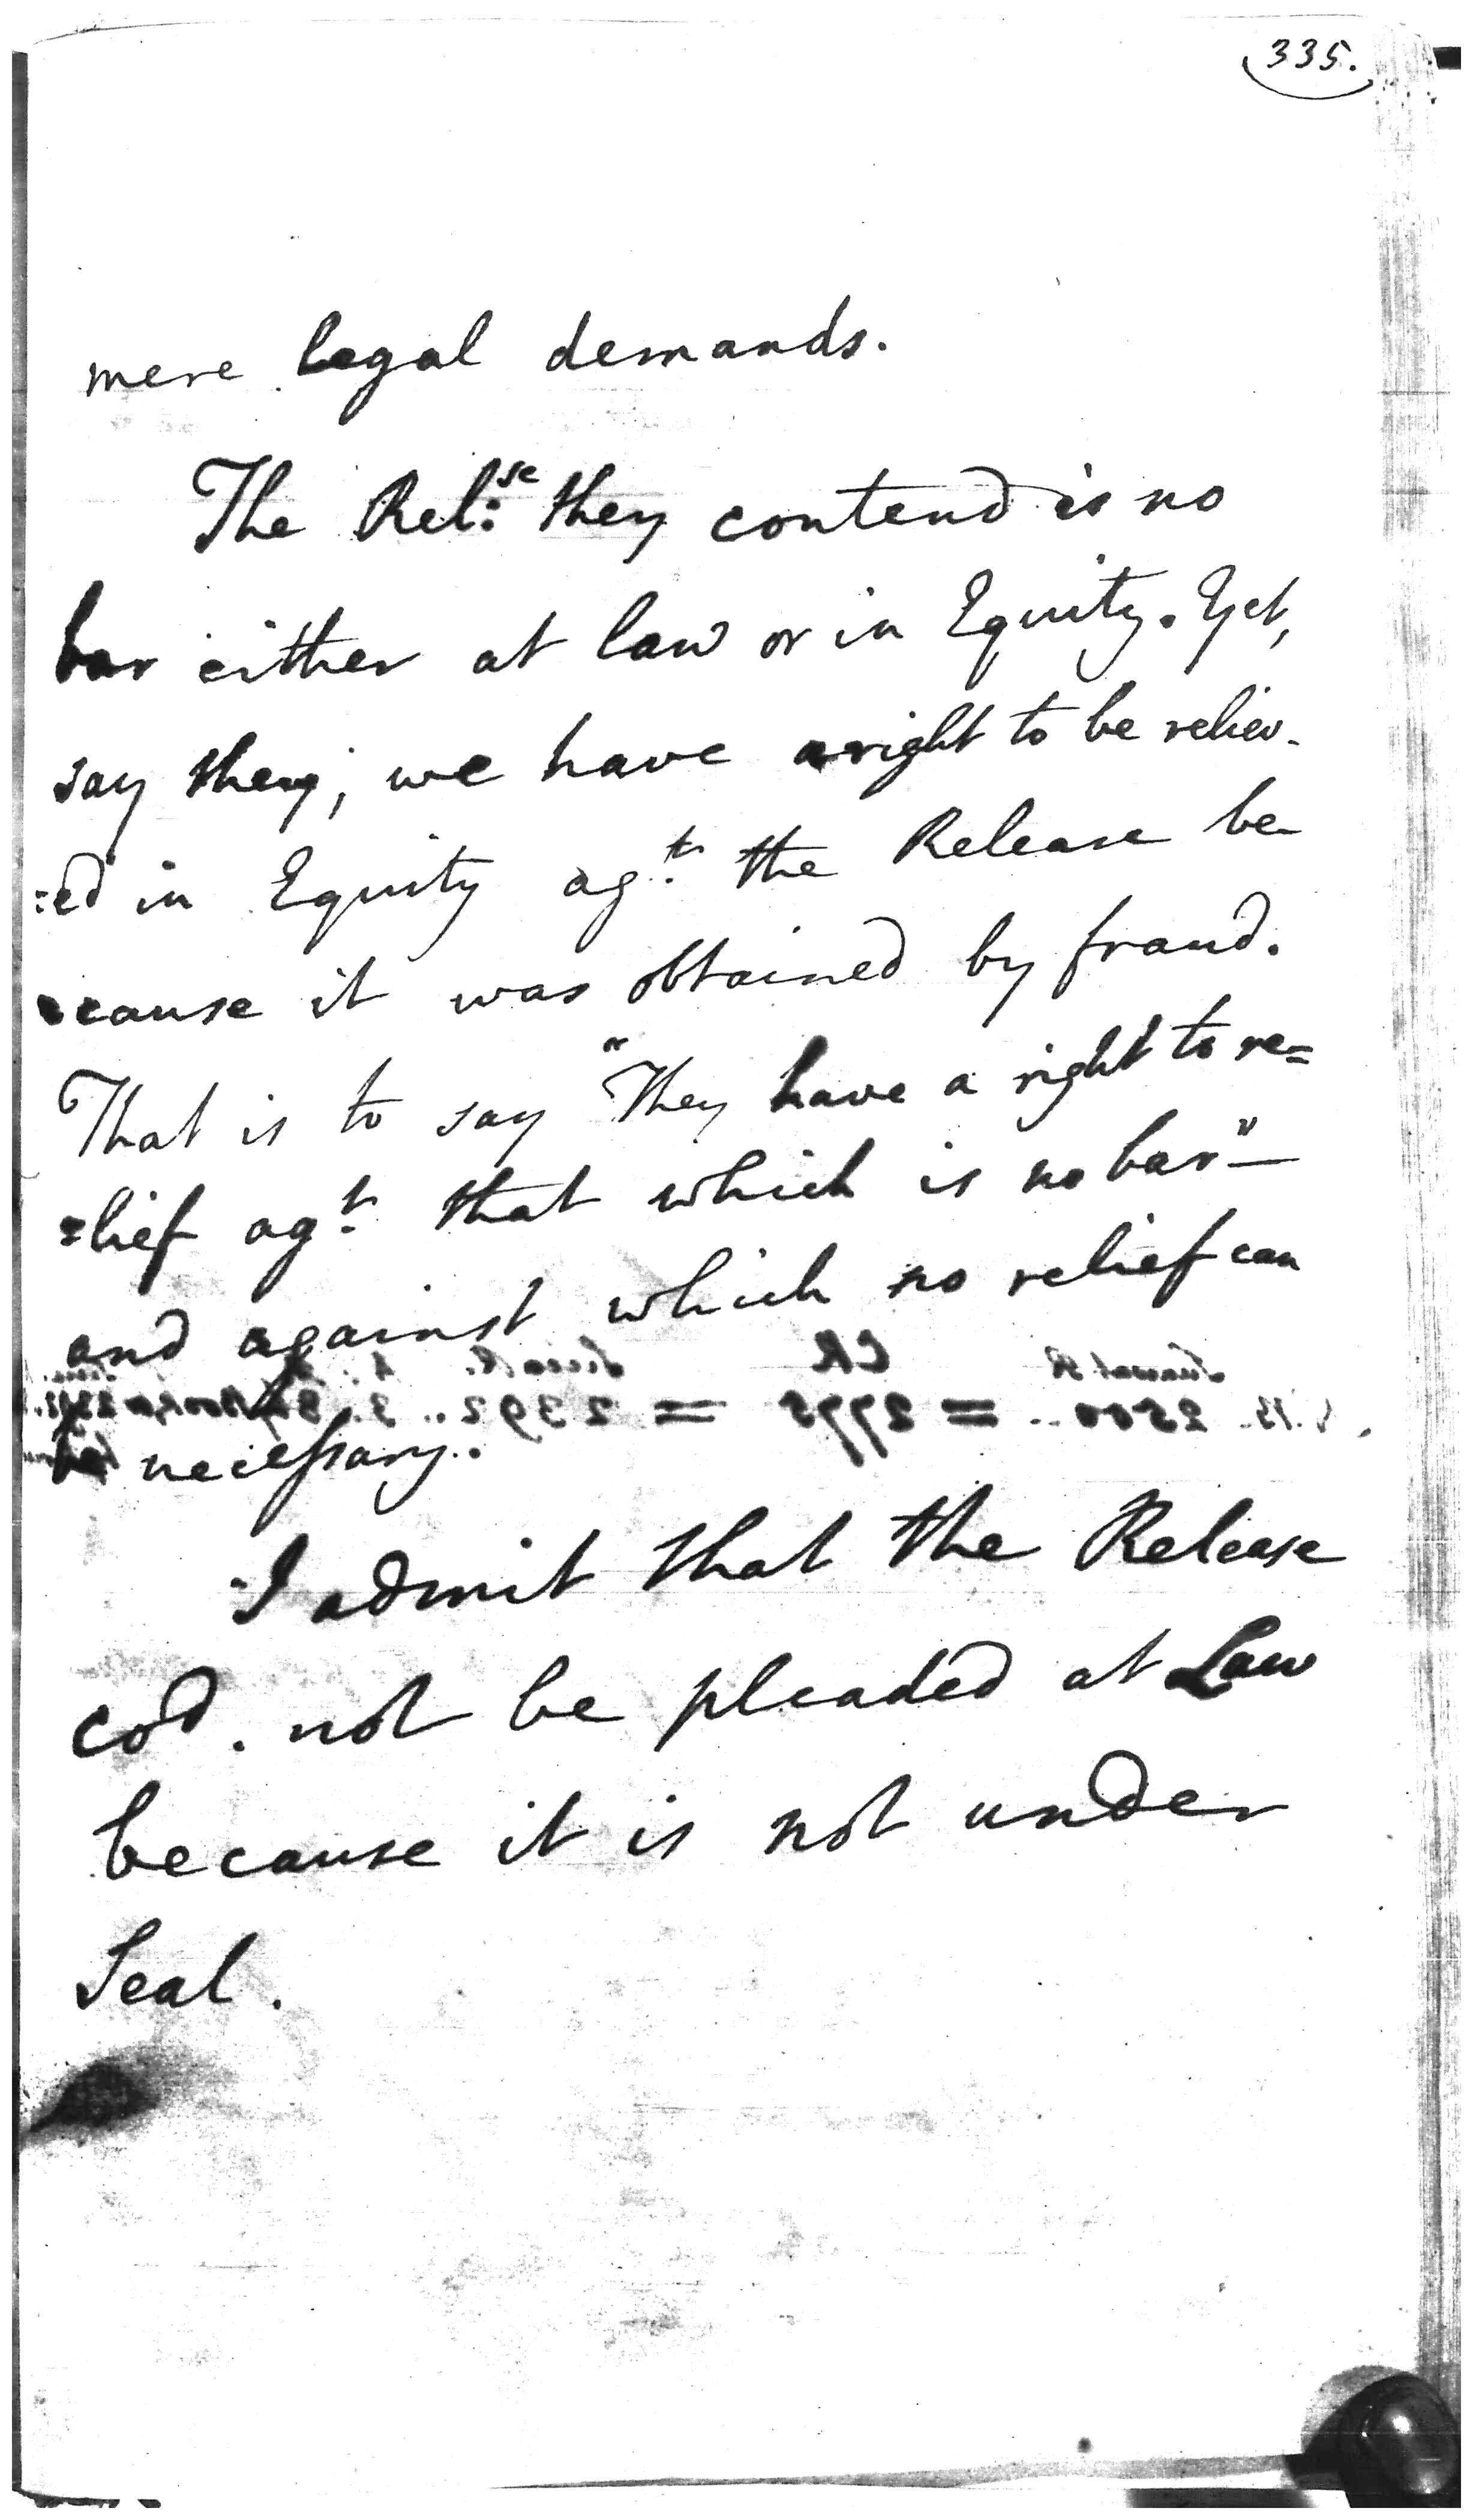 335.
mere legal demands.
The Rel:se they contend is no
bar either at law or in Equity. Yet,
say they; we have a right to be reliev-
:ed in Equity agt. the Release be-
cause it was obtained by fraud.
That is to say "They have a right to re=
=lief agt. that which is no bar"—
and against which no relief can
be necessary.
I admit that the Release
cod. not be pleaded at Law
because it is not under
Seal.